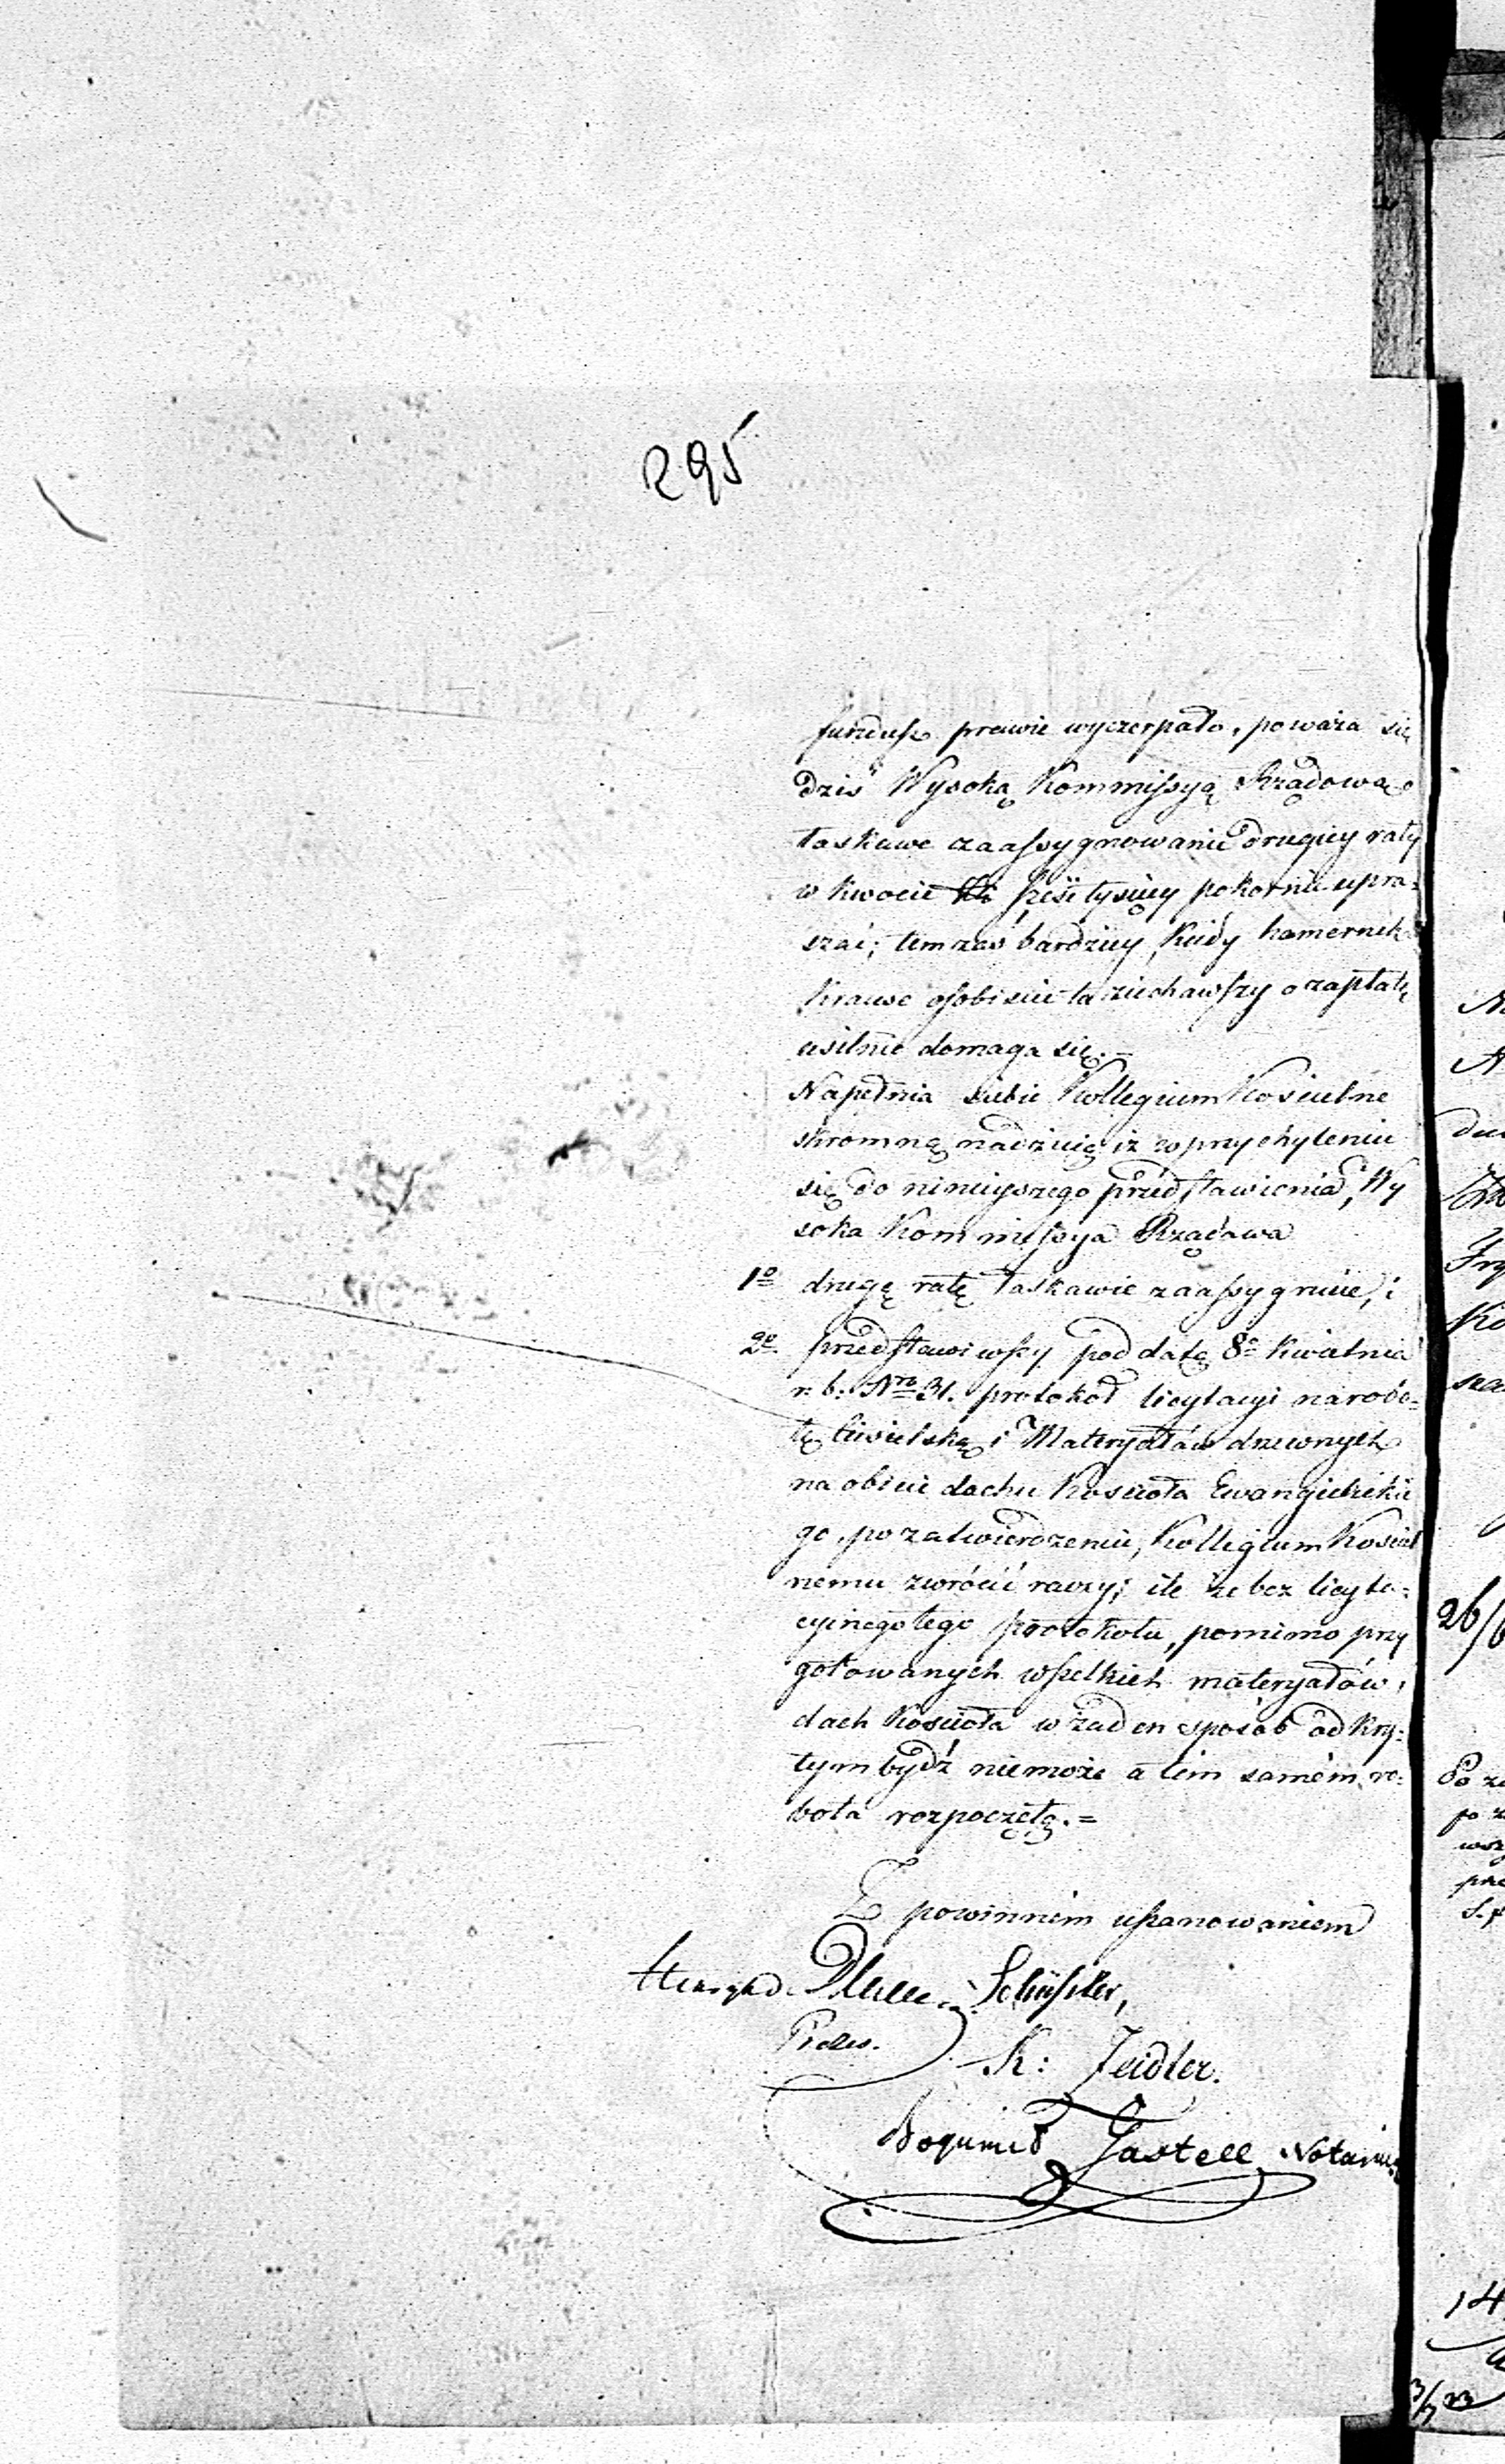 295
fundusz prawie wyczerpało, poważa się
dziś Wysoką Kommissyą Rządową o
łaskawe zaassygnowanie drugiey raty
w kwocie sześć tysięcy pokornie upra=
szać; tem zaś bardziey, kiedy kamernik
Krause osobiście tu ziechawszy o zapłatę
usilnie domaga się.=
Napełnia siebie Kollegium Kościelne
skromną nadzieią iż w przychyleniu
się do ninieyszego przedstawienia, Wy
soka Kommissya Rządowa
1o drugę ratę łaskawie zaassygnuie, i
2o. przedstawiwszy pod datą 8o Kwietnia
r. b. Nro 31. protokół licytacyi na robo=
tę ciesielską i Materyałów drzewnych
na obicie dachu Kościoła Ewangielickie
go, po zatwierdzeniu, Kollegium Kościel
nemu zwrócić raczy; ile że bez licyta=
cyinego tego protokołu, pomimo przy
gotowanych wszelkich materyałów,
dach Kościoła w żaden sposób odkry=
tym bydź niemoże a tém samém ro=
bota rozpoczętą.=
Z powinném uszanowaniem
Henryk Schüssler,
Prezes.
K: Zeidler.
Bogumił Gastell Notarius
26/6
14
3/7 23